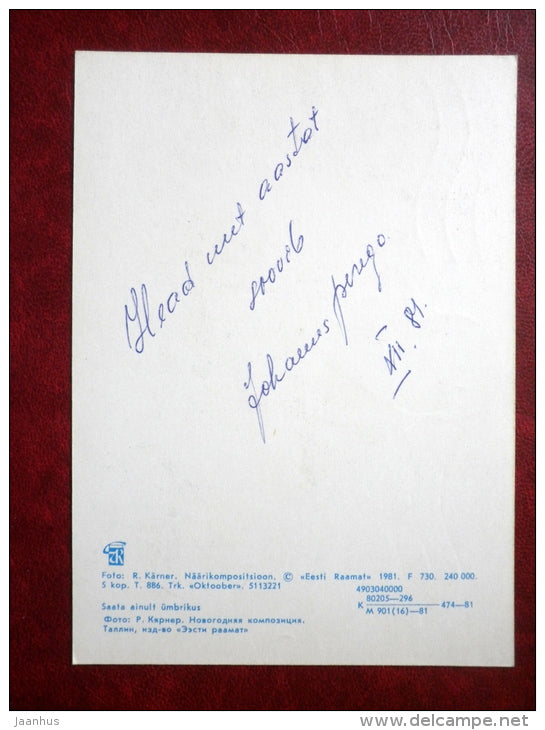 Head uut aastat
soovib
Johannes perega
XII. 81.
ER
Foto: R. Kärner. Näärikompositsioon. © «Eesti Raamat» 1981. F 730. 240 000.
5 kop. T. 886. Trk. «Oktoober». 5113221
4903040000
80205—296
К 474—81
М 901(16)—81
Saata ainult ümbrikus
Фото: Р. Кярнер. Новогодняя композиция.
Таллин, изд-во «Ээсти раамат»
jaanhus
www.delcampe.net